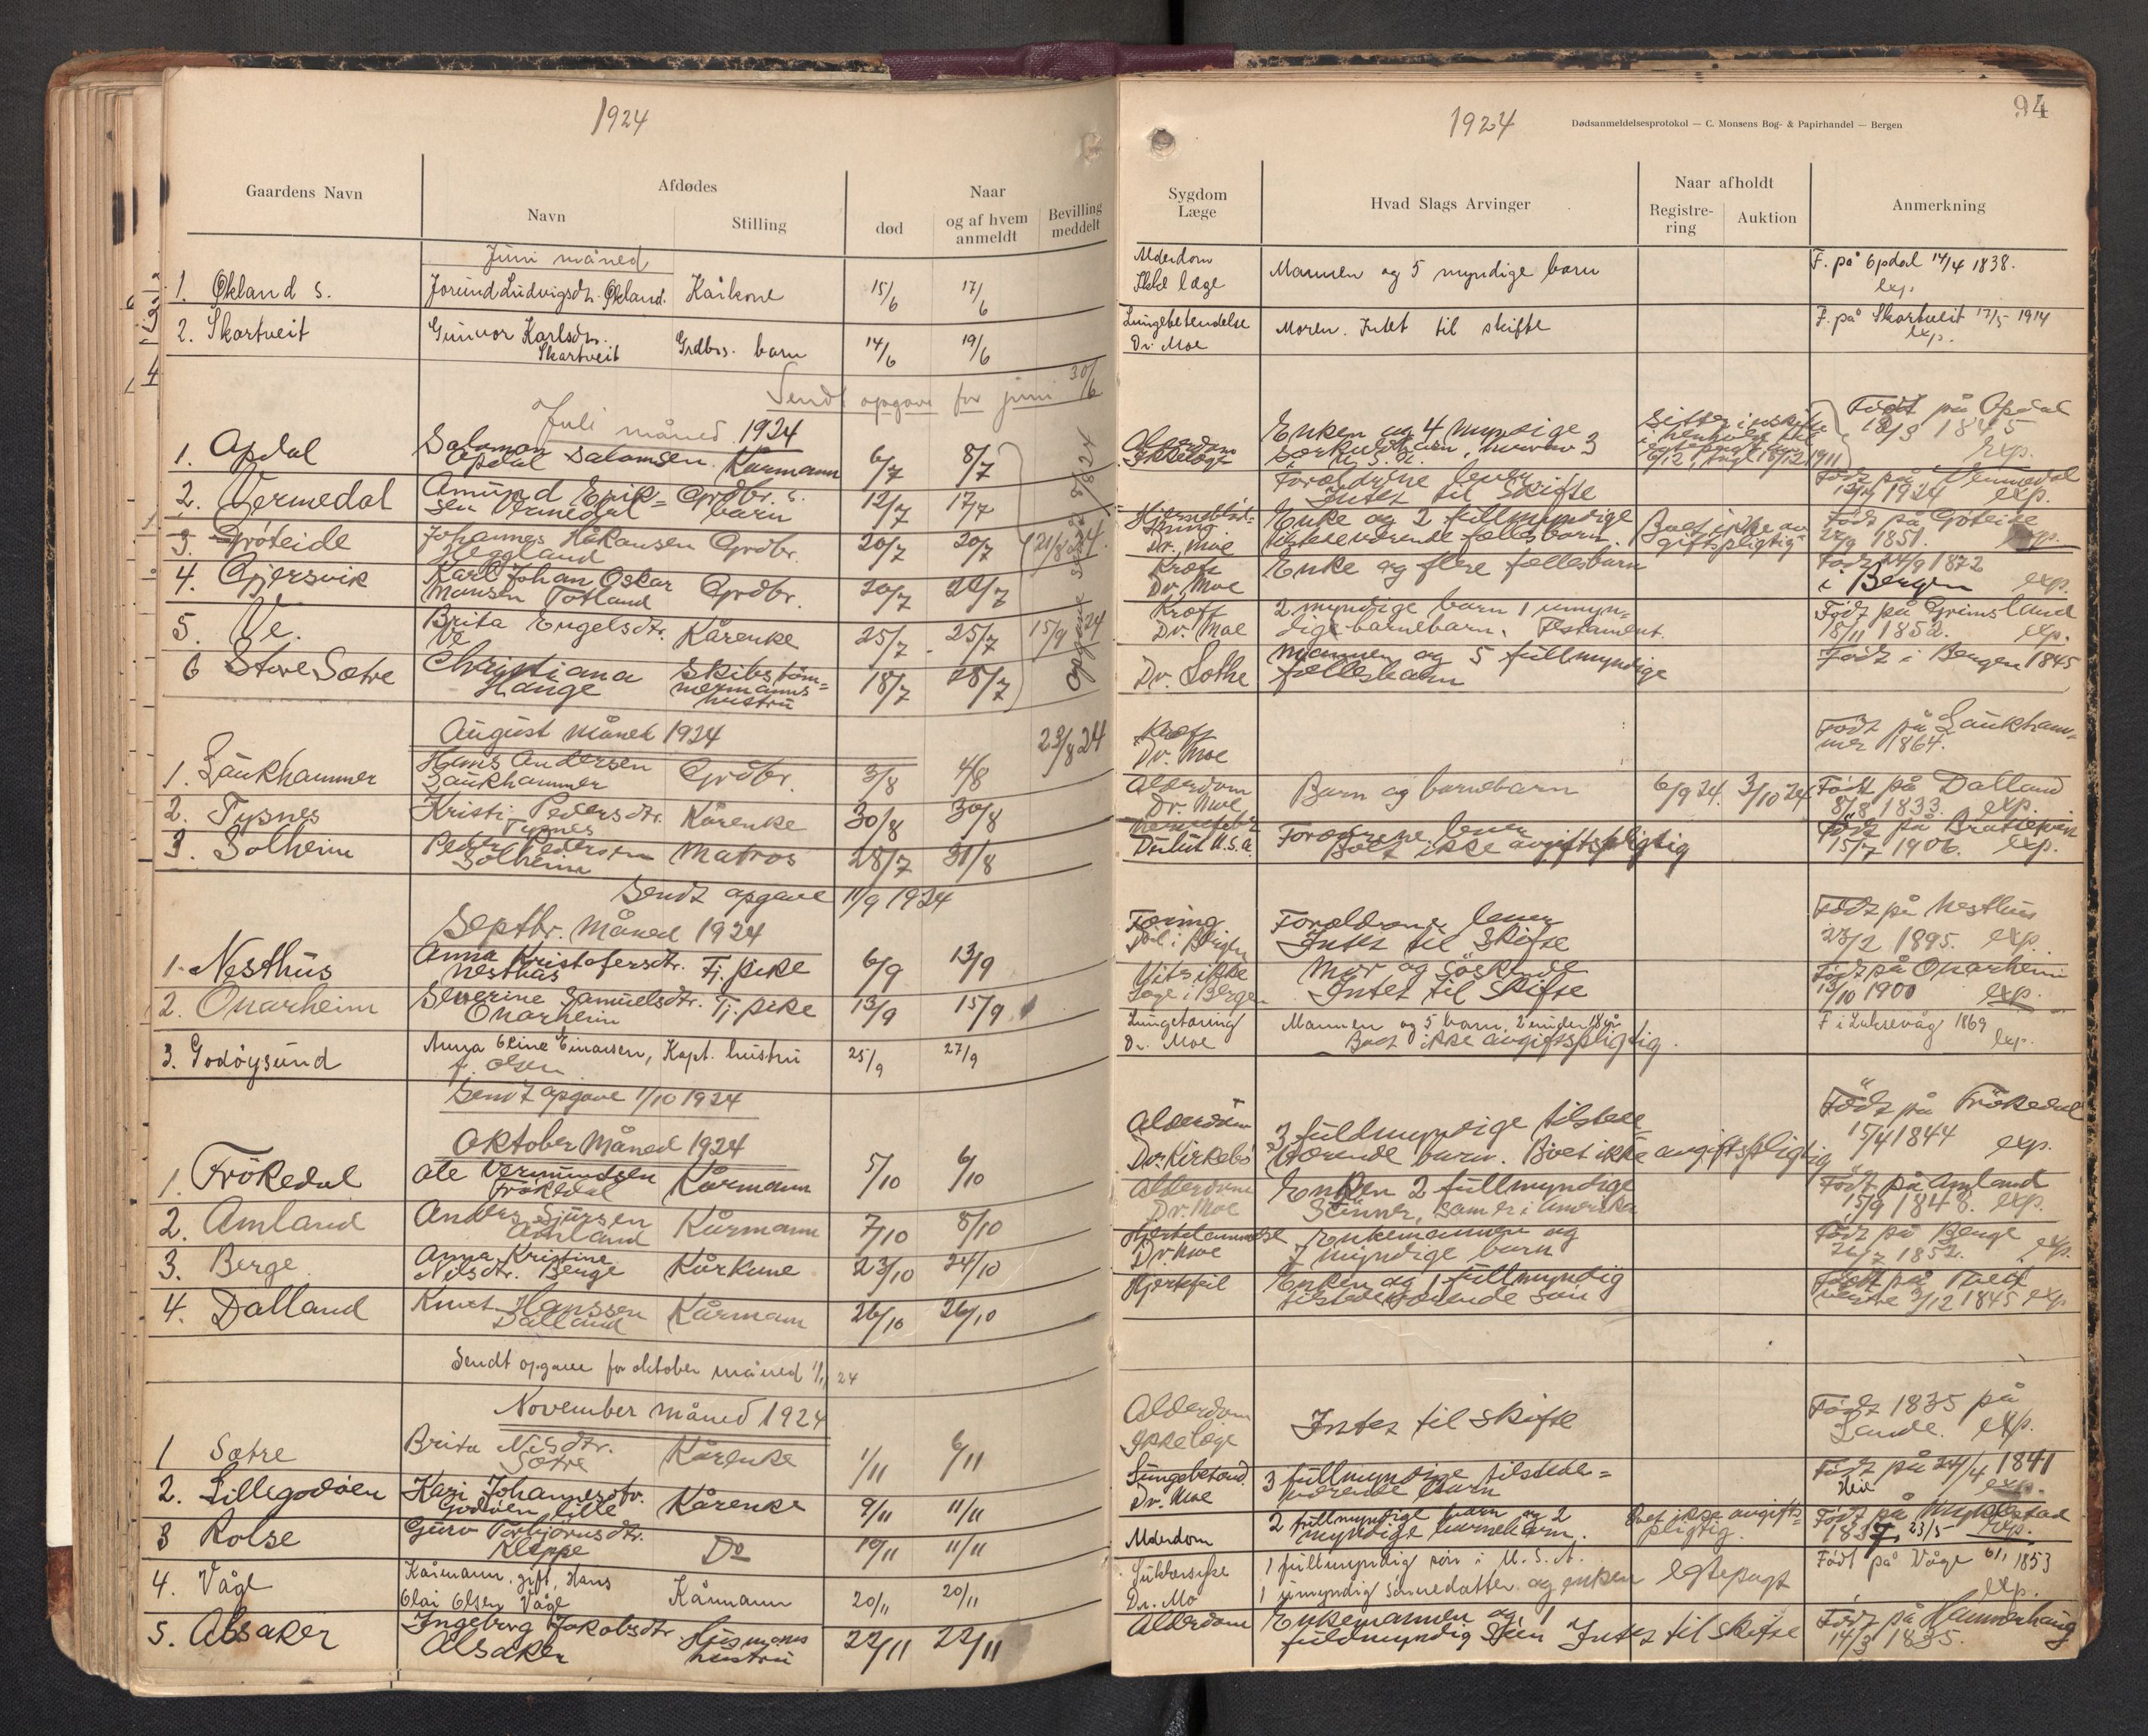 1924
Gaardens Navn
Afdødes
Navn
Stilling
Naar
død
og af hvem
anmeldt
Bevilling
meddelt
Juni måned
1. Økland s. Jorund Ludvigsdtr. Økland. Kårkone 15/6 17/6
2. Skartveit Gunvor Karlsdtr.
Skartveit Grdbrs. barn 14/6 19/6
Sendt opgave for juni 30/6
Juli måned 1924
1. Opdal Salamon
Opdal Salamsen Kårmann 6/7 8/7
2. Vermedal Amund Erik=
sen Vermedal Grdbr. s.
barn 12/7 17/7
3. Gröteide Johannes Håkonsen
Heggland Grdbr. 20/7 20/7 21/8 24.
4. Gjersvik Karl Johan Oskar
Monsen Totland Grdbr. 20/7 22/7
5. Ve. Brita Engelsdtr.
Ve Kårenke 25/7 25/7 15/9 24
6 Store Sætre Christiana
Hauge Skibstöm=
mermanns
hustru 18/7 28/7
August måned 1924
23/8 24
1. Laukhammer Hans Andersen
Laukhammer Grdbr. 3/8 4/8
2. Tysnes Kristi Pedersdtr.
Tysnes Kårenke 30/8 30/8
3. Solheim Peder Pedersen
Solheim Matros 28/7 31/8
Sendt opgave 11/9 1924
Septbr. Måned 1924
1. Nesthus Anna Kristofersdtr.
Nesthus Tj. pike 6/9 13/9
2. Onarheim Severine Samuelsdtr.
Onarheim Tj. pike 13/9 15/9
3. Godöysund Anna Eline Einarsen,
f. Olsen Kapt. hustru 25/9 27/9
Sendt opgave 1/10 1924
Oktober Måned 1924
1. Frökedal Ole Vermundsen
Frökedal Kårmann 5/10 6/10
2. Amland Anders Sjursen
Amland Kårmann 7/10 8/10
3. Berge Anna Kristine
Nilsdtr. Berge Kårkone 23/10 24/10
4. Dalland Knut Hanssen
Dalland Kårmann 26/10 26/10
Sendt opgave for oktober måned 1/11 24
November måned 1924
1 Sætre Brita Nilsdtr.
Sætre Kårenke 1/11 6/11
2. Lillegodöen Kari Johannesdtr.
Godöen lille Kårenke 9/11 11/11
3 Rolse Guro Torbjörnsdtr.
Kleppe Do 10/11 11/11
4. Våge Kårmann, gift, Hans
Olai Olsen Våge Kårmann 20/11 20/11
5. Alsaker Ingeborg Jakobsdtr
Alsaker Husmanns
hustru 22/11 22/11
1924
Dødsanmeldelsesprotokol — C. Monsens Bog- & Papirhandel — Bergen
94
Sygdom
Læge
Hvad Slags Arvinger
Naar afholdt
Registre-
ring
Auktion
Anmerkning
Alderdom
Ikke læge
Mannen og 5 myndige barn
F. på Opdal 14/4 1838.
exp.
Lungebetendelse
Dr. Moe
Moren. Intet til skifte
F. på Skartveit 17/5 1914
exp.
Alderdom
Ikke læge
Enken og 4 myndige
særkuldbarn, hvorav 3
i U. S. A.
Sitter i uskifte
Födt på Opdal
18/3 1845
exp.
Foreldrene lever
Intet til Skifte
Födt på Vermedal
1924 exp.
Dr. Moe
Enke og 2 fullmyndige
tilstedeværende fellesbarn.
Boet ikke av=
giftspligtig
Födt på Gröteide
22/9 1851. exp.
Kræft
Dr. Moe
Enke og flere fællesbarn
Födt 24/9 1872
i Bergen exp.
Kræft
Dr. Moe
2 myndige barn 1 umyn=
dig barnebarn. Testament.
Födt på Grimsland
18/11 1852. exp.
Dr. Lothe
Mannen og 5 fullmyndige
fællesbarn
Födt i Bergen 1845
Kræft
Dr. Moe
Födt på Laukham=
mer 1864.
Alderdom
Dr. Moe
Barn og barnebarn
6/9 24. 3/10 24
Födt på Dalland
8/8 1833. exp.
Duluth U.S.A.
Foreldrene lever
Boet ikke avgiftspligtig
15/7 1906. exp.
Tæring
Foreldrene lever
Intet til Skifte
Födt på Nesthus
23/2 1895. exp.
Vites ikke
Læge i Bergen
Mor og söskende
Intet til Skifte
Födt på Onarheim
13/10 1900 exp.
Lungetæring
Dr. Moe
Mannen og 5 barn, 2 under 18 år
Boet ikke avgiftspligtig.
F i Laksevåg 1869
exp.
Alderdom
Dr. Kirkebö
3 fuldmyndige tilstede
værende barn. Boet ikke avgiftspligtig
Födt på Frökedal
15/4 1844 exp.
Alderdom
Dr. Moe
Enken 2 fullmyndige
Sönner, som er i Amerika
Födt på Amland
15/9 1848. exp.
Hjertelammelse
Dr. Moe
Enkemannen og
7 myndige barn
Födt på Berge
1852. exp.
Hjertefeil
Enken og 1 fullmyndig
tilstedeværende sön
1845 exp.
Alderdom
Ikke læge
Intet til Skifte
Födt 1835 på
Lande. exp.
Lungebetend.
Dr. Moe
3 fullmyndige tilstede=
værende barn
Födt på 24/4 1841
Heie exp.
Alderdom
2 fullmyndige barn og 2
myndige barnebarn.
Boet ikke avgifts=
pligtig
1837, 23/5 exp.
Sukkersyke
Dr. Mo
1 fullmyndig sön i U. S. A.
1 umyndig sönnedatter og enken
Födt på Våge 1853
exp.
Alderdom
Enkemannen og 1
fuldmyndig Sön Intet til skifte
Födt på Hammerhaug
14/3 1835.